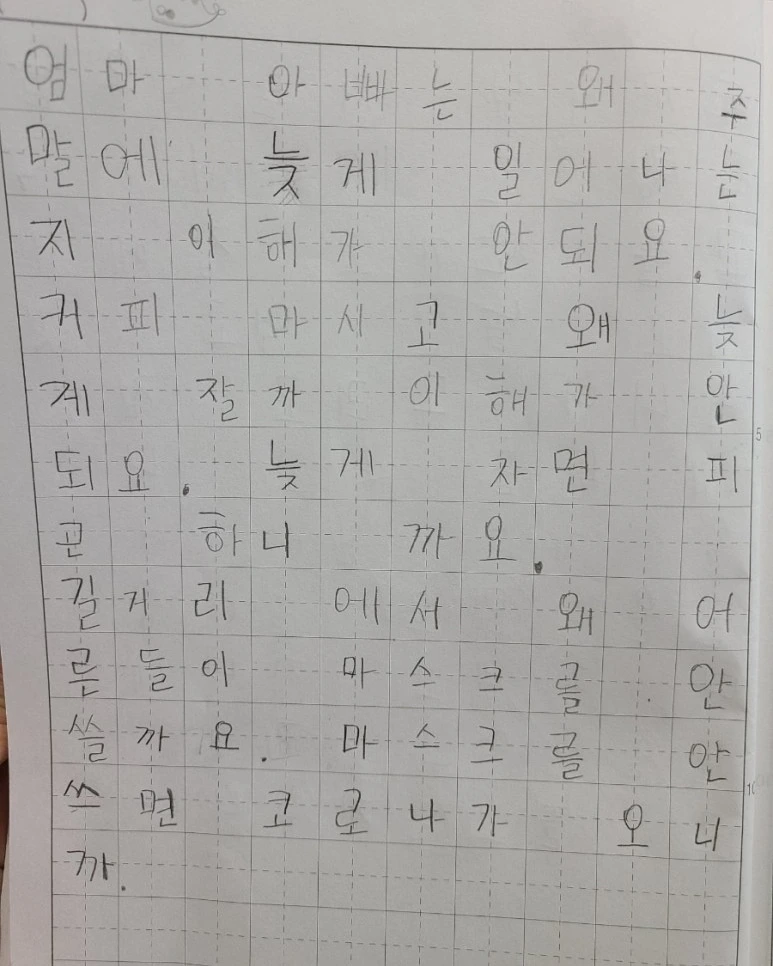 엄마 아빠는 왜 주
말에 늦게 일어나는
지 이해가 안되요.
커피 마시고 왜 늦
게 잘까 이해가 안
되요. 늦게 자면 피
곤 하니 까요.
길거리 에서 왜 어
른들이 마스크를 안
쓸까요. 마스크를 안
쓰면 코로나가 오니
까.